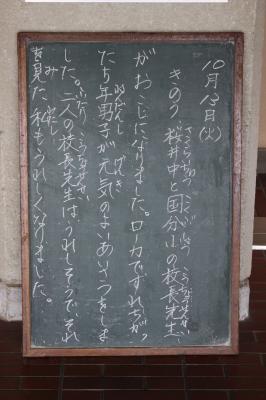 10月13日(火)
きのう桜井中と国分小の校長先生
がおこしになりました。ローカですれちがっ
た5年男子が元気のよいあいさつをしま
した。二人の校長先生は、うれしそうで、それ
を見た私もうれしくなりました。